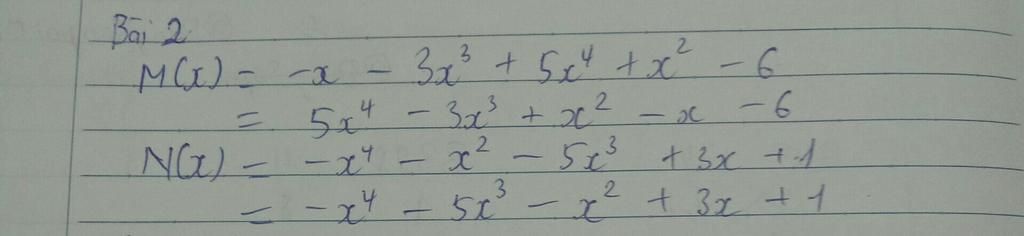 Bài 2
M(x) = -x - 3x³ + 5x⁴ + x² - 6
= 5x⁴ - 3x³ + x² - x - 6
N(x) = -x⁴ - x² - 5x³ + 3x + 1
= -x⁴ - 5x³ - x² + 3x + 1